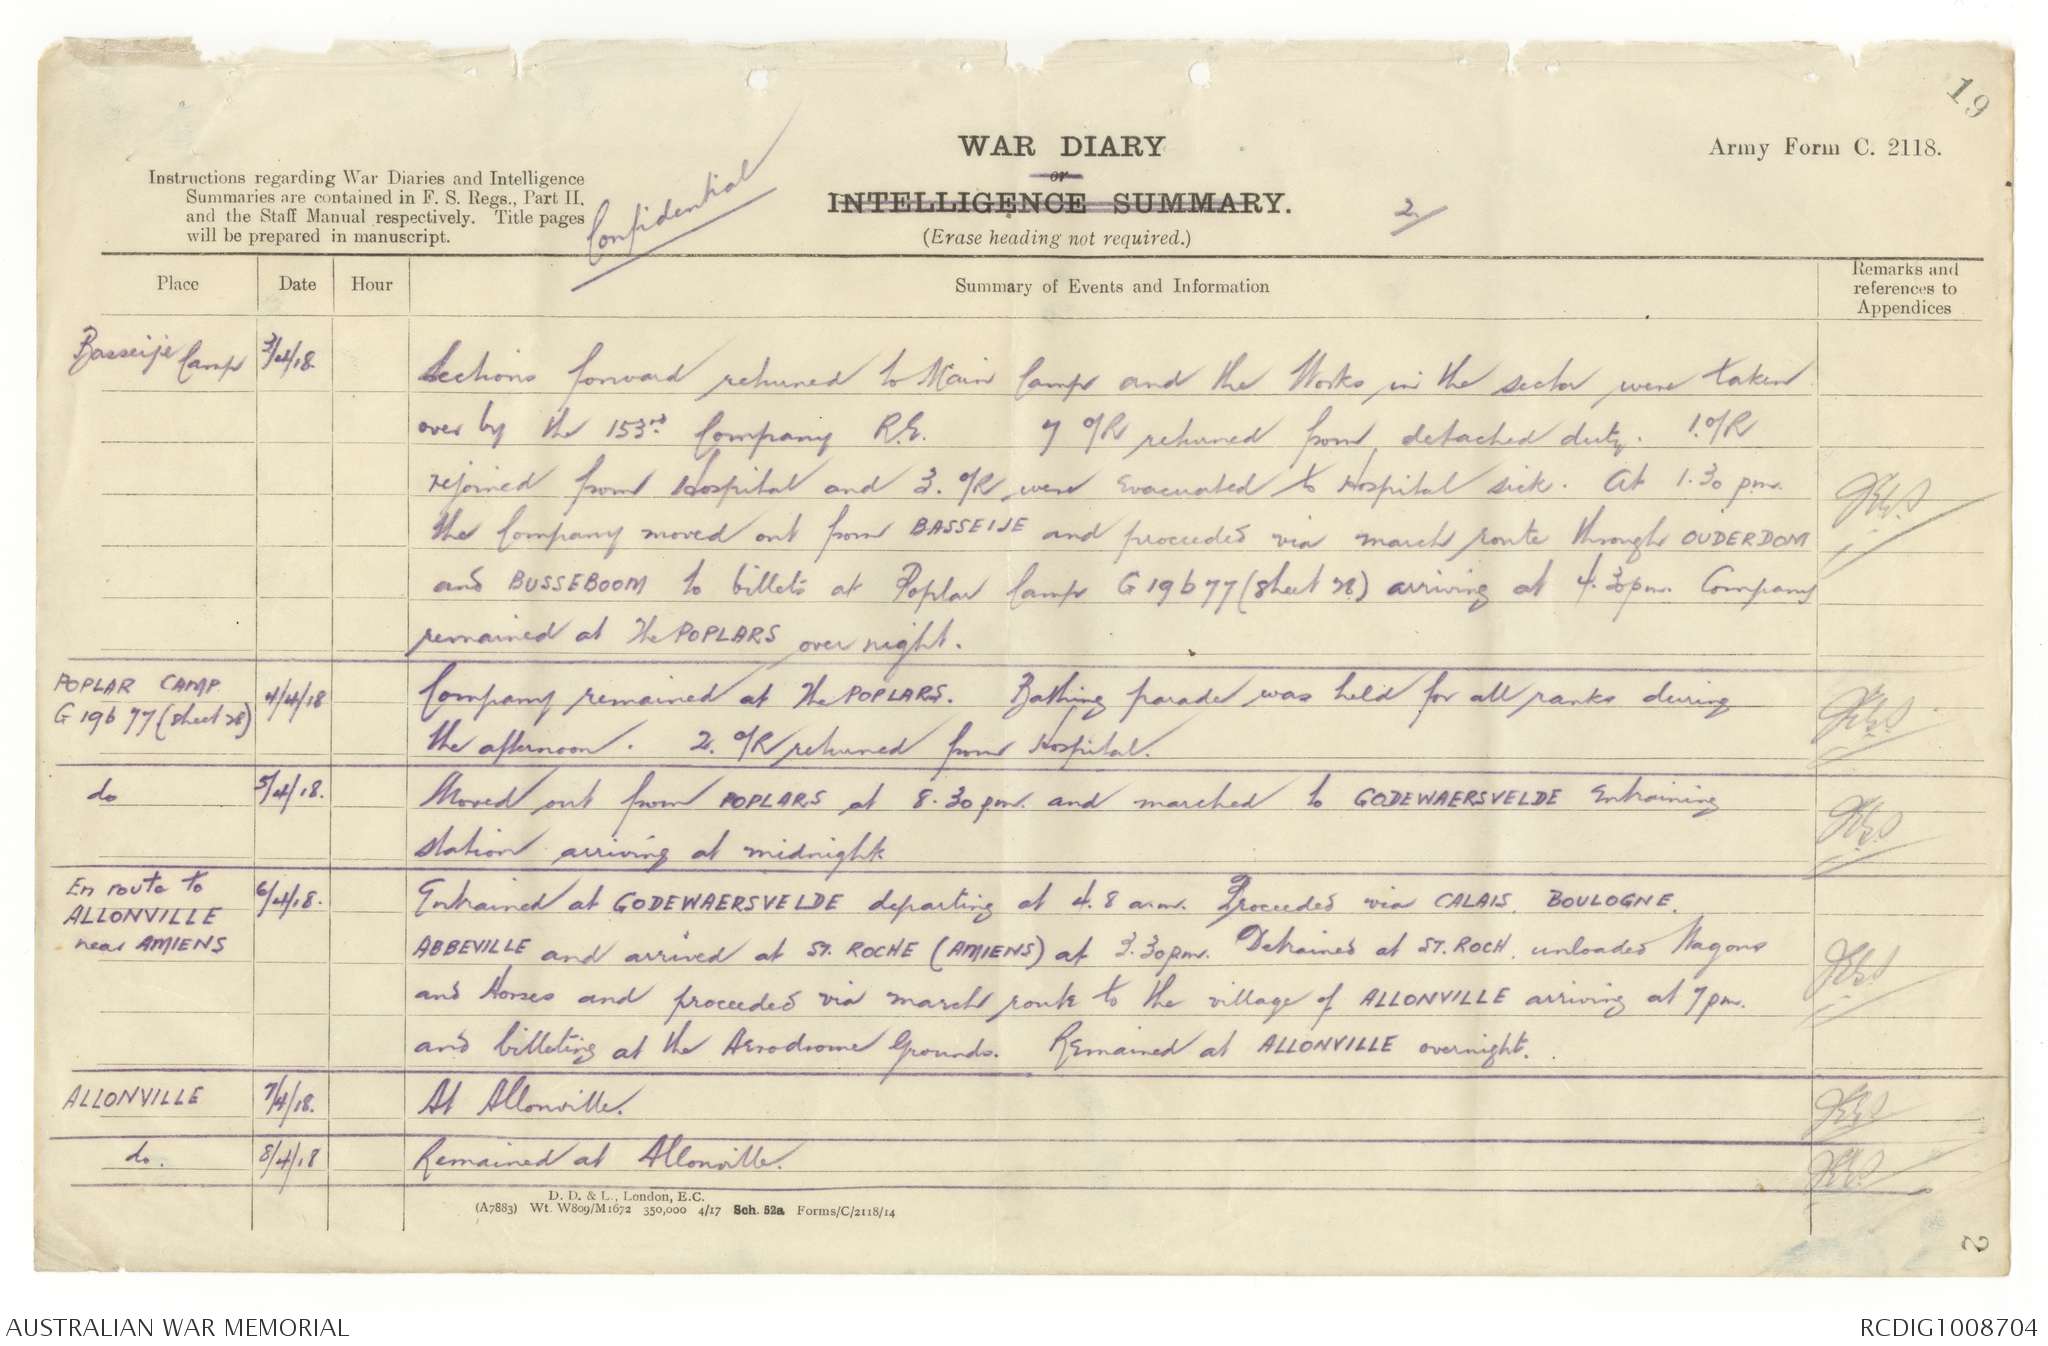 19
WAR DIARY
or
INTELLIGENCE SUMMARY.
(Erase heading not required.)
Army Form C. 2118.
Instructions regarding War Diaries and Intelligence
Summaries are contained in F. S. Regs., Part II.
and the Staff Manual respectively. Title pages
will be prepared in manuscript.
Confidential
2/
Place
Date
Hour
Summary of Events and Information
Remarks and
references to
Appendices
Basseije Camp 3/4/18. Sections forward returned to Main Camp and the Works in the sector were taken
over by the 153rd Company R.E. 7 O/R returned from detached duty. 1.O/R
rejoined from Hospital and 3. O/R were Evacuated to Hospital sick. At 1.30 p.m.
the Company moved out from BASSEIJE and proceeded via march route through OUDERDOM
and BUSSEBOOM to billets at Poplar Camp G 19 b 77 (Sheet 28) arriving at 4.30 pm. Company
remained at The POPLARS over night.
POPLAR CAMP. 4/4/18 Company remained at The POPLARS. Bathing parade was held for all ranks during
G 19 b 77 (Sheet 28) the afternoon. 2. O/R returned from Hospital.
do 5/4/18. Moved out from POPLARS at 8.30 pm. and marched to GODEWAERSVELDE Entraining
station arriving at midnight
En route to 6/4/18. Entrained at GODEWAERSVELDE departing at 4.8 am. Proceeded via CALAIS, BOULOGNE,
ALLONVILLE
near AMIENS ABBEVILLE and arrived at ST. ROCHE (AMIENS) at 3.30pm. Detrained at ST. ROCH, unloaded Wagons
and Horses and proceeded via march route to the village of ALLONVILLE arriving at 7 pm.
and billeting at the Aerodrome Grounds. Remained at ALLONVILLE overnight.
ALLONVILLE 7/4/18. At Allonville.
do. 8/4/18 Remained at Allonville.
D. D. & L., London, E.C.
(A7883) Wt. W809/M1672 350,000 4/17 Sch. 52a Forms/C/2118/14
2
AUSTRALIAN WAR MEMORIAL
RCDIG1008704